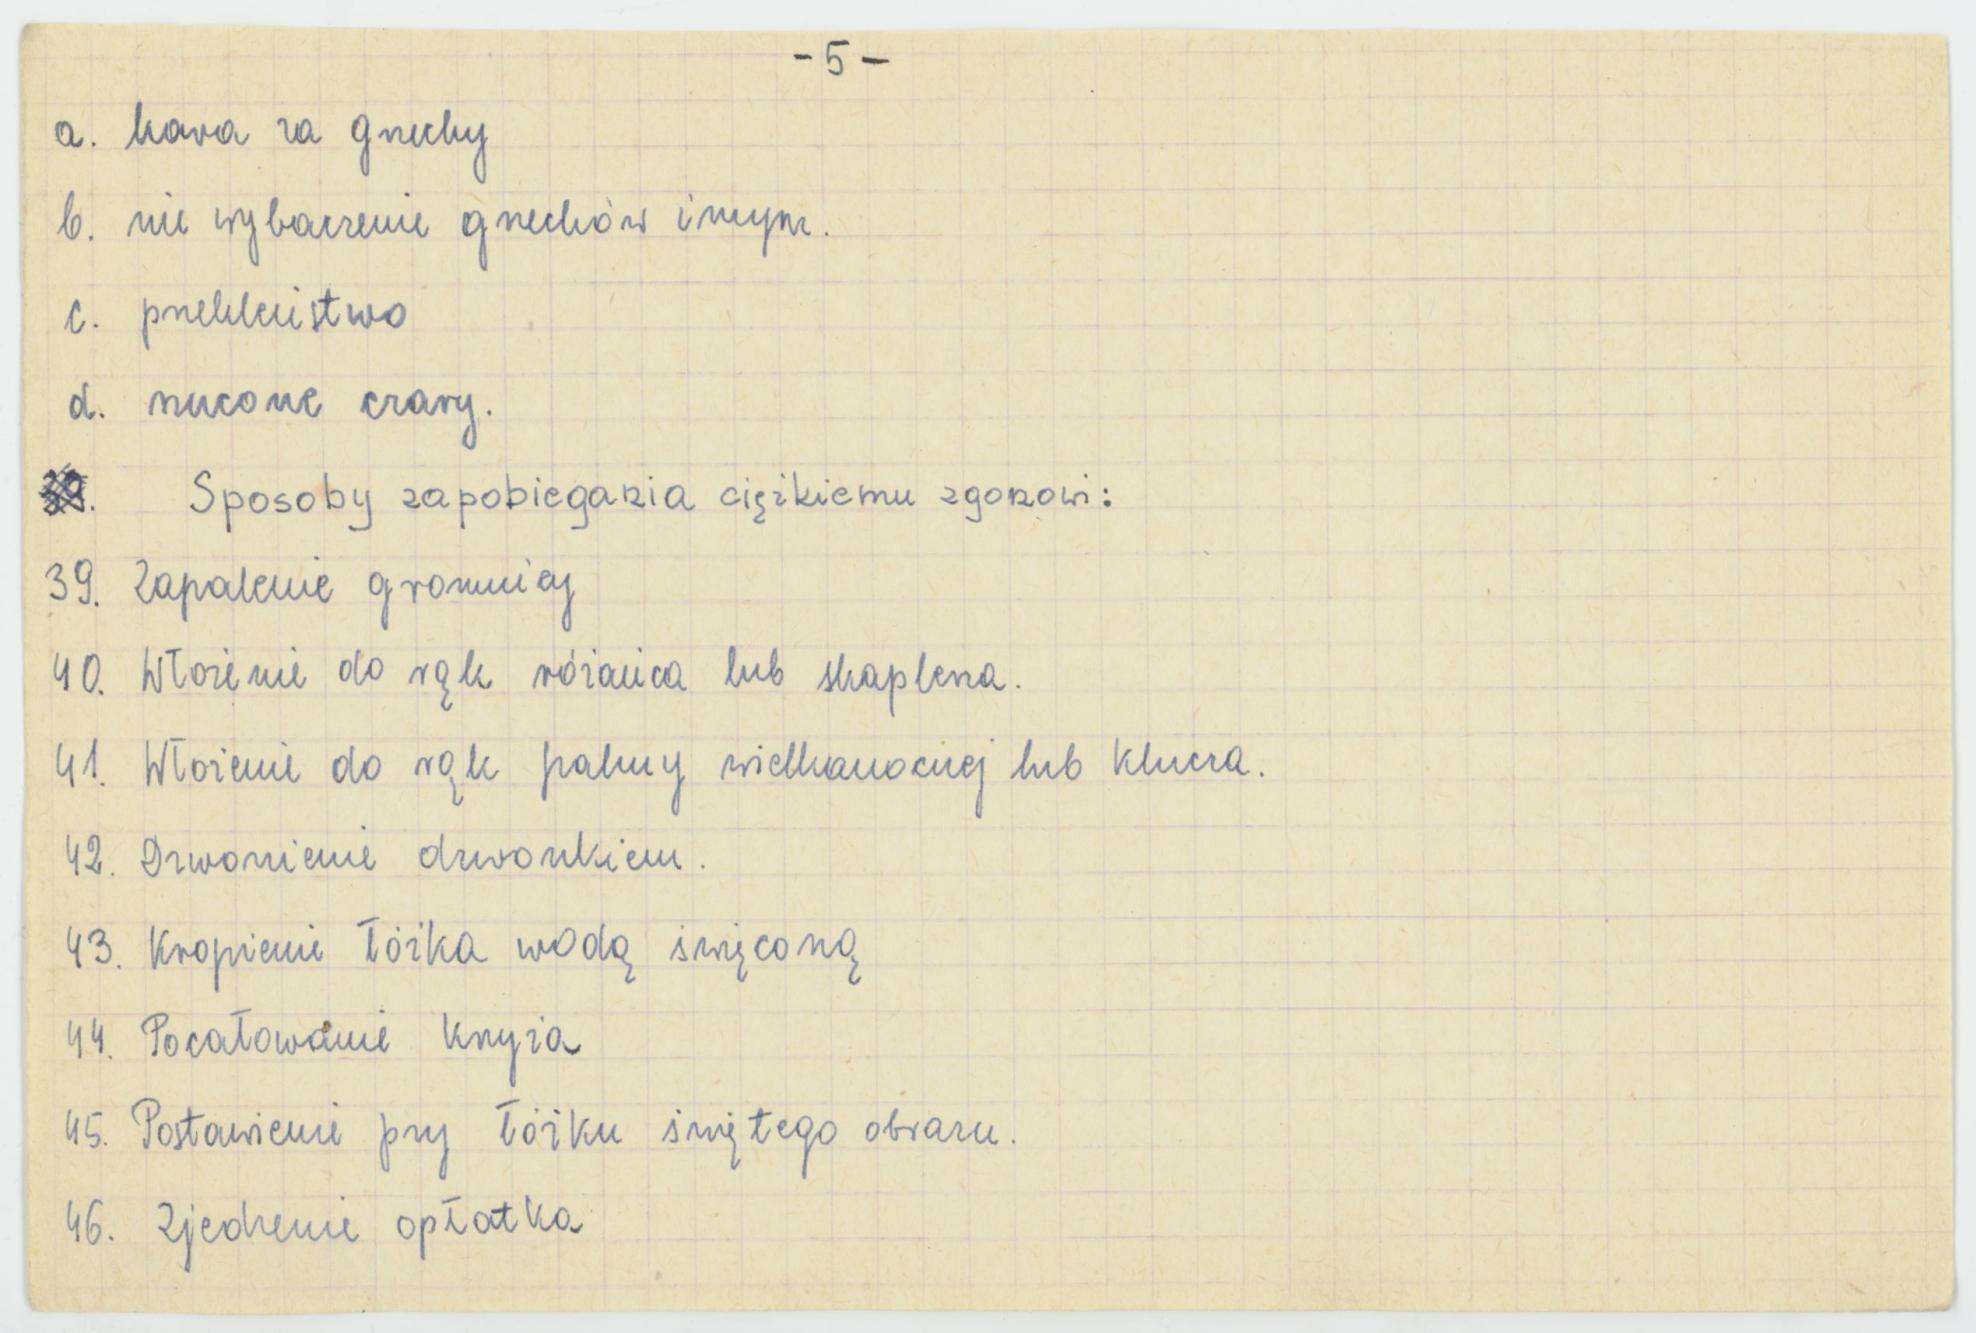 - 5 -
a. kara za grzechy
b. nie wybaczenie grzechów innym.
c. przekleństwo
d. rzucone czary.
39. Sposoby zapobiegania ciężkiemu zgonowi:
39. Zapalenie gromnicy
40. Włożenie do rąk różańca lub skaplerza.
41. Włożenie do rąk palmy wielkanocnej lub klucza.
42. Dzwonienie dzwonkiem.
43. Kropienie łóżka wodą święconą
44. Pocałowanie krzyża
45. Postawienie przy łóżku świętego obrazu.
46. Zjedzenie opłatka